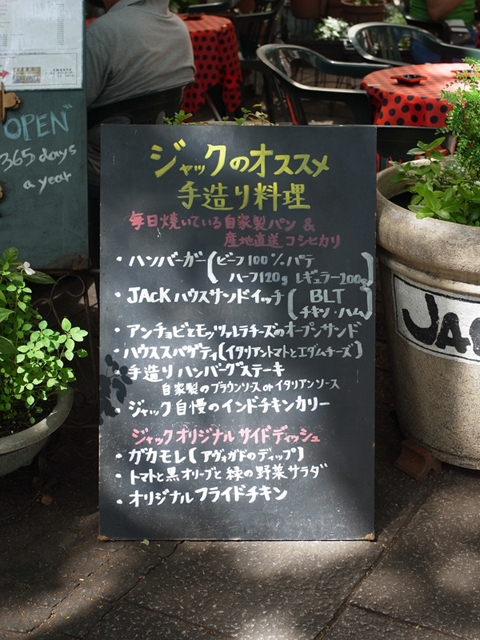 OPEN
365 days
a year
ジャックのオススメ
手造り料理
毎日焼いている自家製パン &
産地直送コシヒカリ
・ハンバーガー(ビーフ100%パテ
ハーフ120g レギュラー200g)
・JACKハウスサンドイッチ(BLT
チキン・ハム)
・アンチョビとモッツァレラチーズのオープンサンド
・ハウススパゲティ(イタリアントマトとエダムチーズ)
手造りハンバーグステーキ
自家製のブラウンソース or イタリアンソース
・ジャック自慢のインドチキンカリー
ジャックオリジナルサイドディッシュ
・ガカモレ(アヴォガドのディップ)
・トマトと黒オリーブと緑の野菜サラダ
・オリジナルフライドチキン
JA